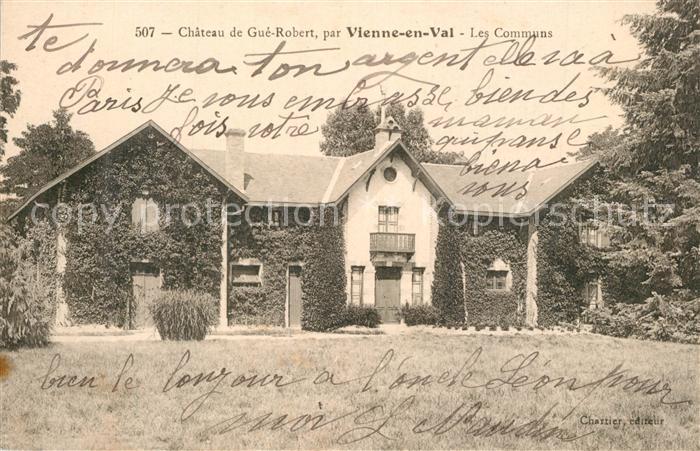 507 — Château de Gué-Robert, par Vienne-en-Val - Les Communs
te
donnera ton argent elle va à
Paris Je vous embrasse biendes
fois votre maman
qui pense
bien a
vous
© podvin-collection.com
bien le bonjour a l'oncle Léon pour
moi
Chartier, editeur